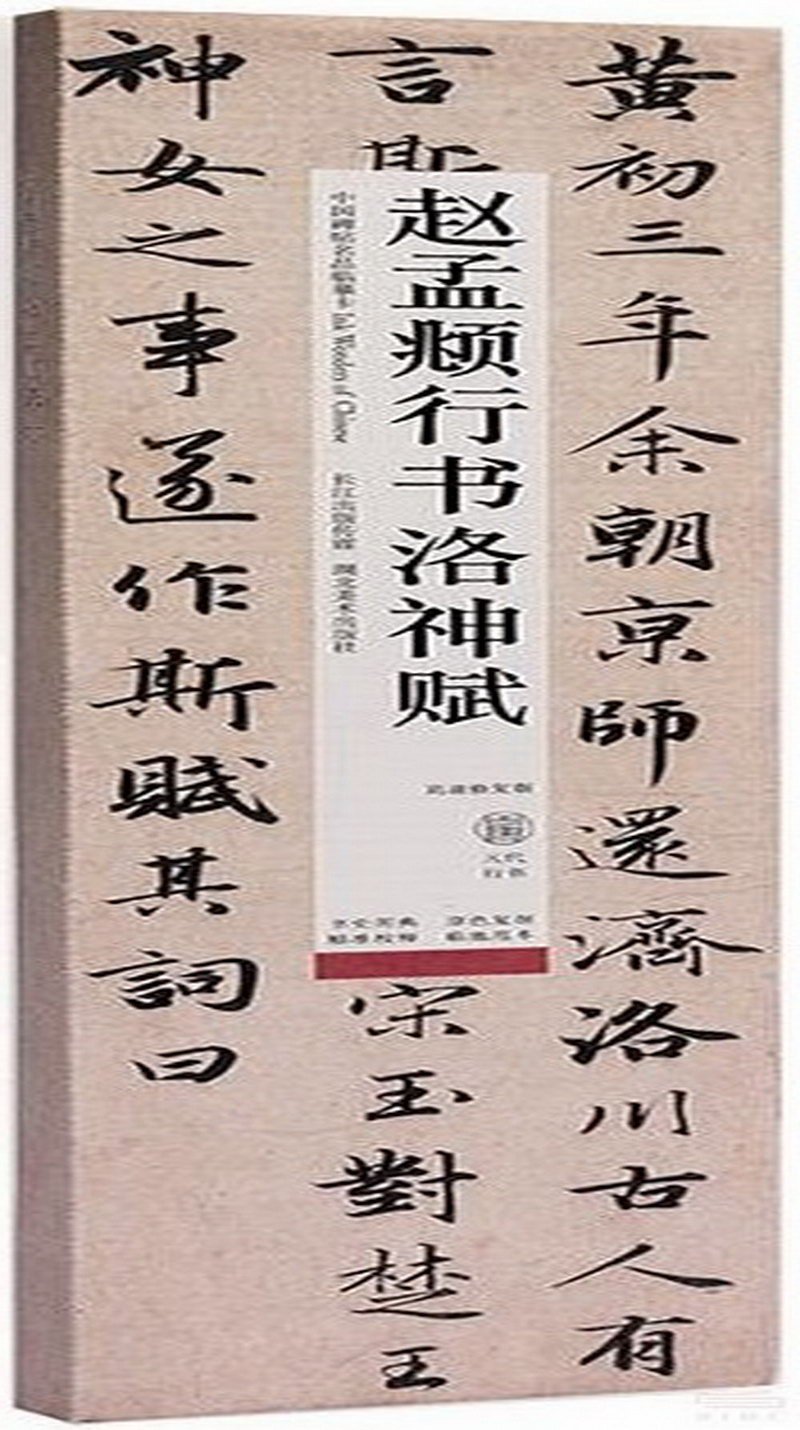 黄初三年余朝京師還濟洛川古人有
言斯
宋玉對楚王
神女之事遂作斯賦其詞曰
赵孟頫行书洛神赋
中国碑帖名品临摹卡 Ink Wonders of China
长江出版传媒 湖北美术出版社
元代
行书